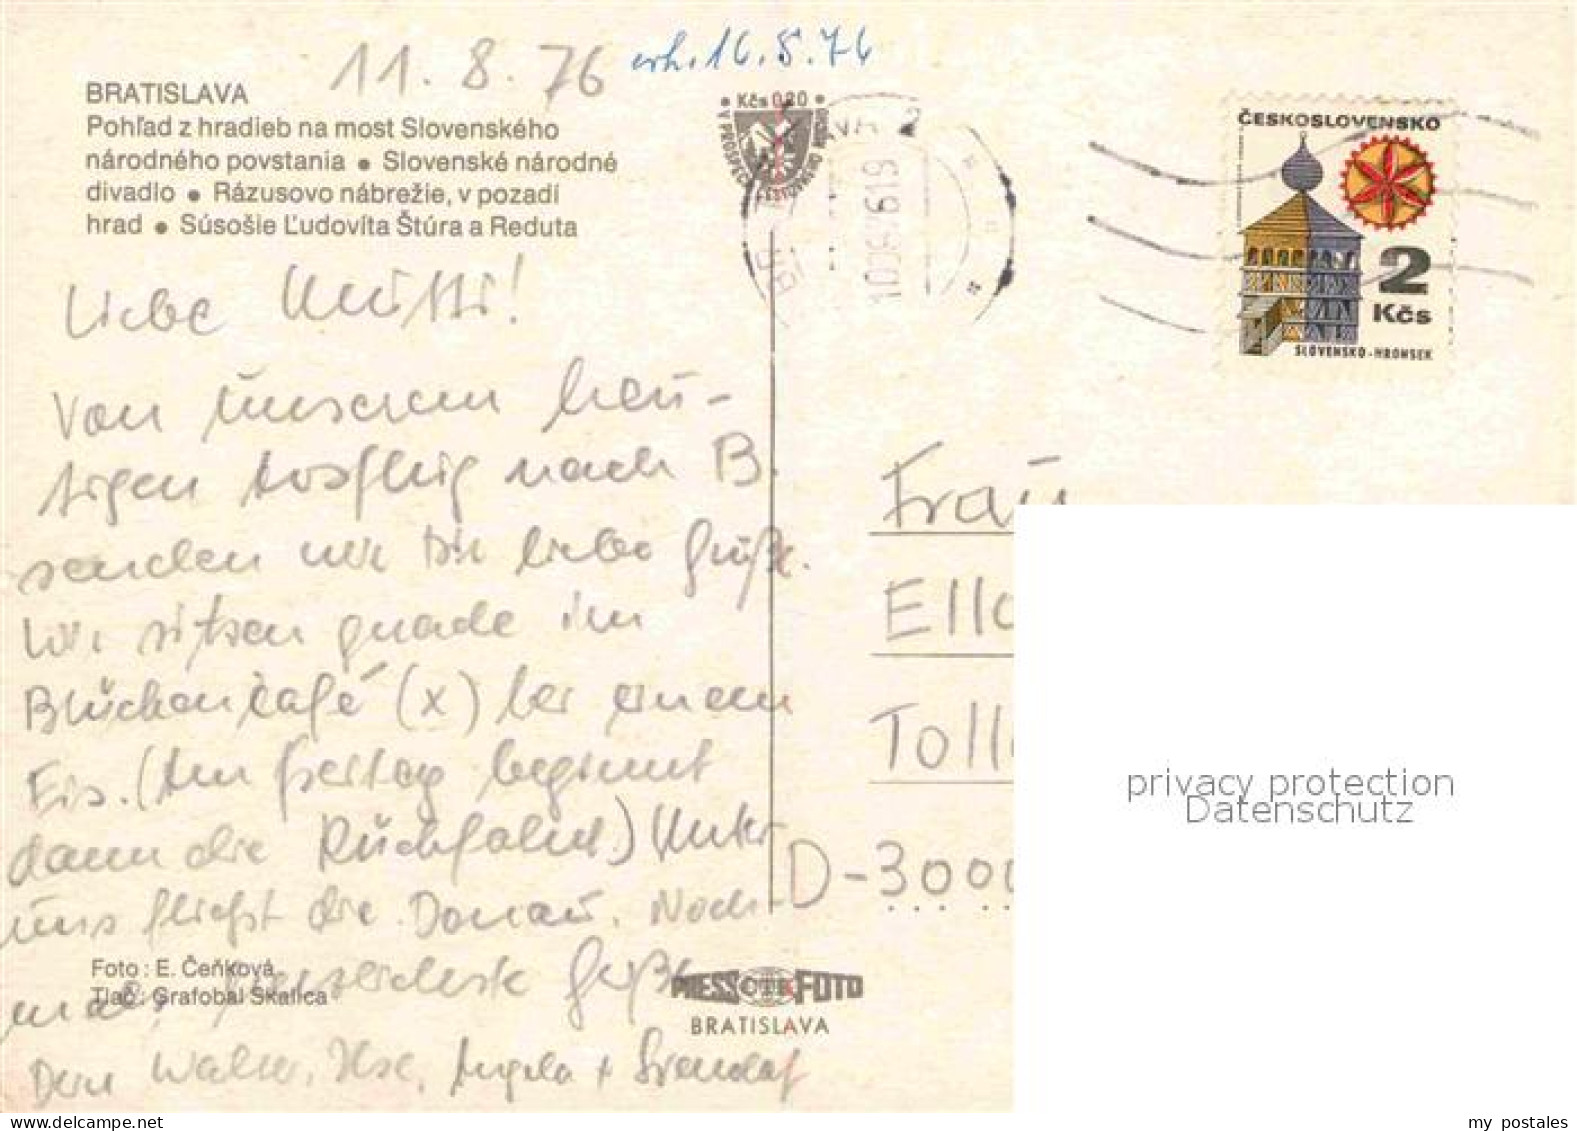 11.8.76 erh. 16.5.76
BRATISLAVA
Pohľad z hradieb na most Slovenského
národného povstania ● Slovenské národné
divadlo ● Rázusovo nábrežie, v pozadí
hrad ● Súsošie Ľudovíta Štúra a Reduta
Kčs 0,80
ČESKOSLOVENSKO
2
Kčs
SLOVENSKO-HRONSEK
Liebe Mutti!
Von unserem heu-
tigen Ausflug nach B.
senden wir Dir liebe Grüße.
Wir sitzen gerade im
café (x) bei einem
Eis. (Am Freitag beginnt
dann die Rückfahrt) Unter
uns fließt die Donau. Noch
mals Grüße
Dein Walter, Ilse, Angela +
Frau
Ella
Toll
D-3000
privacy protection
Datenschutz
Foto: E. Čeňková
Tlač: Grafobal Skalica
PRESS ČTK FOTO
BRATISLAVA
my postales